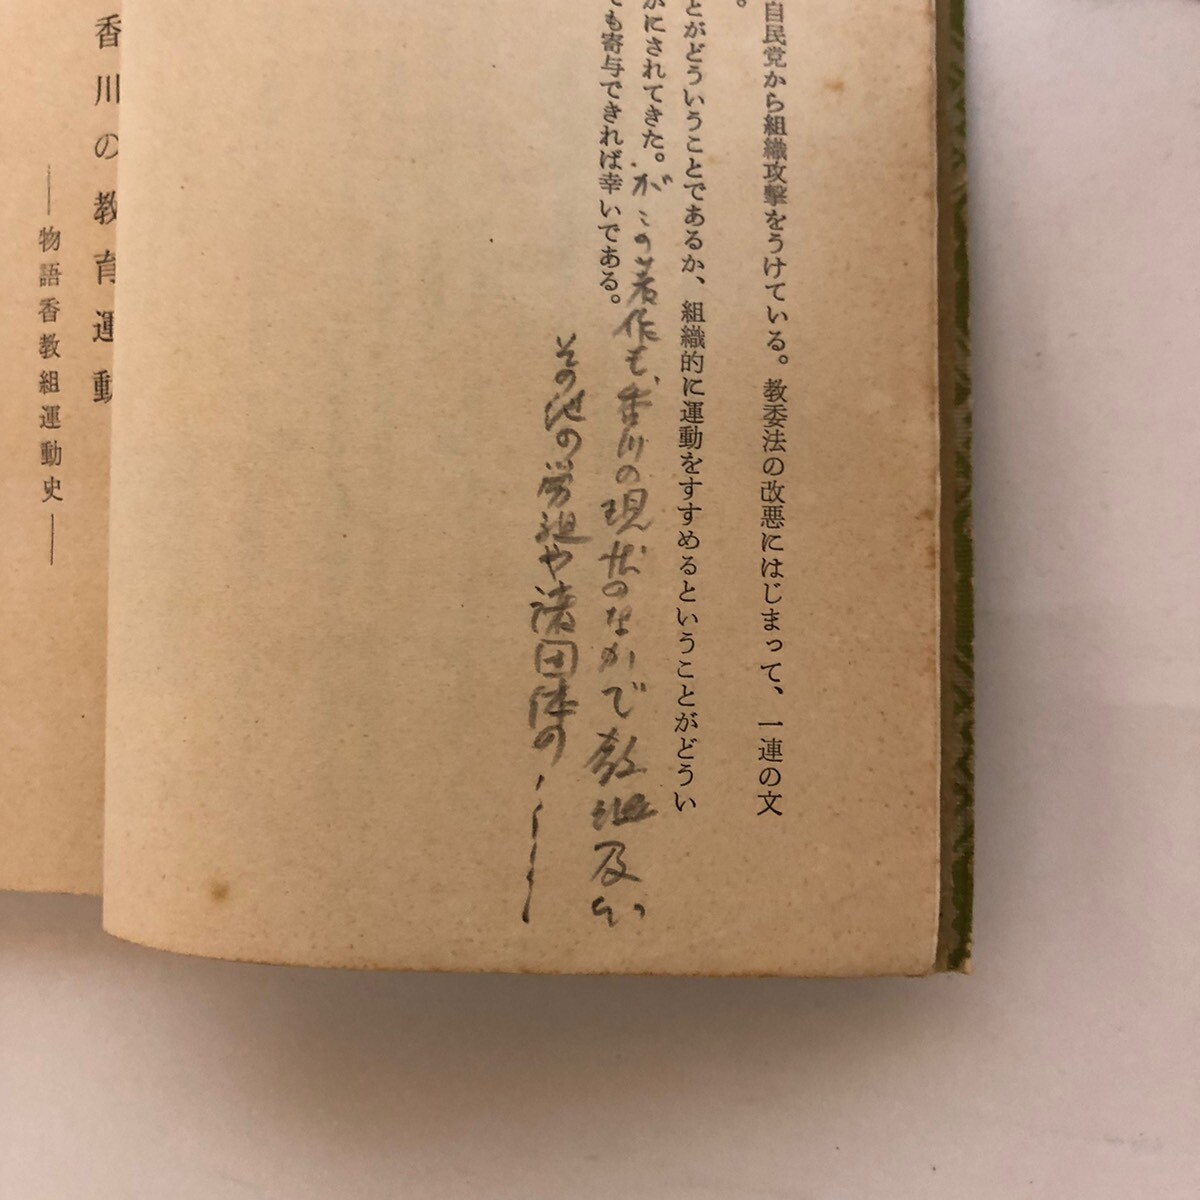 自民党から組織攻撃をうけている。教委法の改悪にはじまって、一連の文
。
とがどういうことであるか、組織的に運動をすすめるということがどうい
かにされてきた。
が この著作も、香川の現状のなかで教組及び
ても寄与できれば幸いである。
その他の労組や諸団体の
香川の教育運動
―物語香教組運動史―